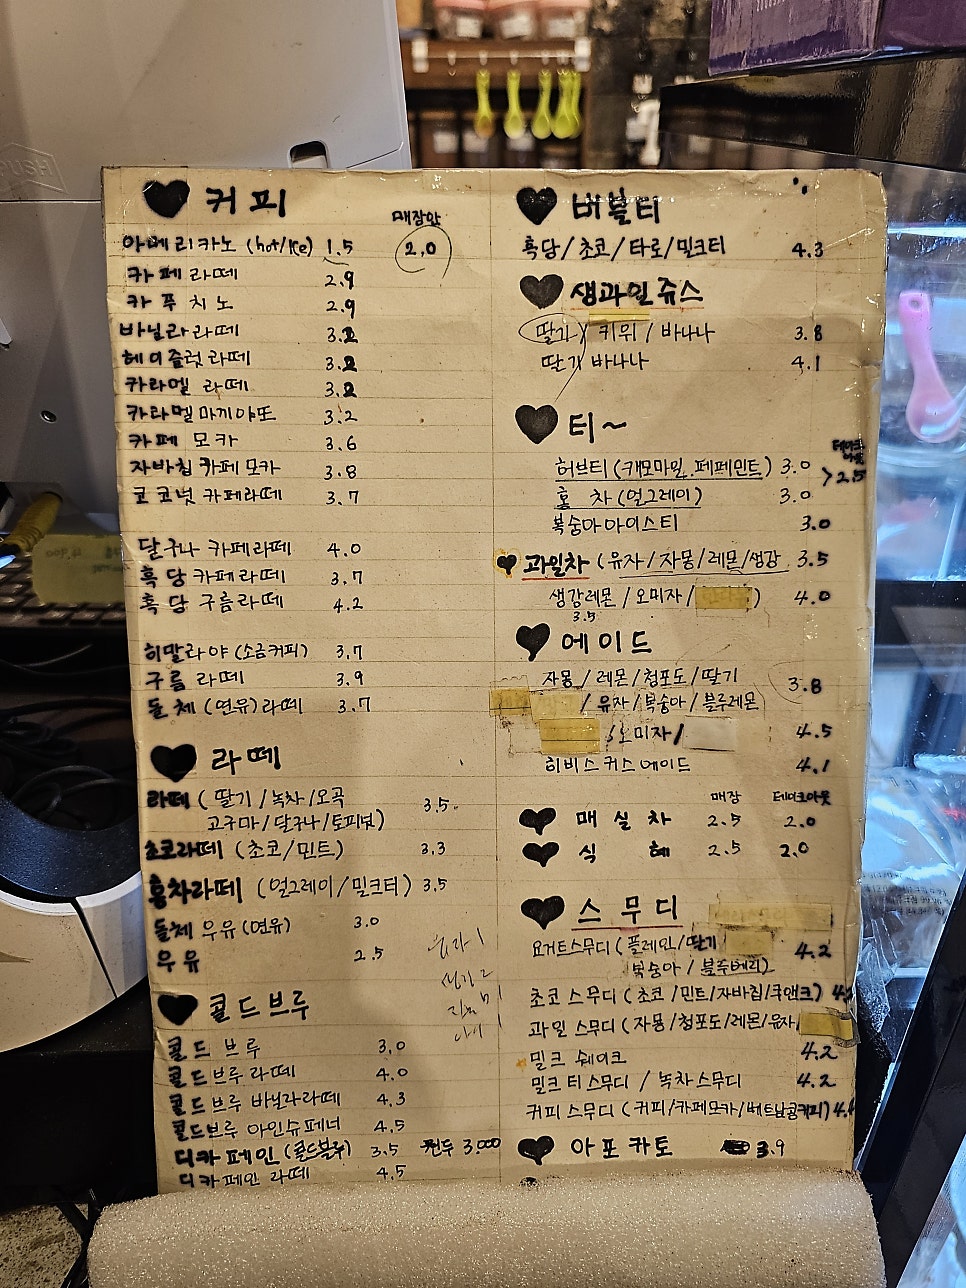 커피
매장안
아메리카노 (hot/ice) 1.5 2.0
카페라떼 2.9
카푸치노 2.9
바닐라라떼 3.2
헤이즐럿라떼 3.2
카라멜 라떼 3.2
카라멜마끼야또 3.2
카페 모카 3.6
자바칩카페모카 3.8
코코넛 카페라떼 3.7
달구나 카페라떼 4.0
흑당카페라떼 3.7
흑당 구름라떼 4.2
히말라야 (소금커피) 3.7
구름 라떼 3.9
돌체 (연유)라떼 3.7
라떼
라떼 ( 딸기/녹차/오곡 3.5
고구마/달구나/토피넛)
초코라떼 (초코/민트) 3.3
홍차라떼 (얼그레이/밀크티) 3.5
돌체우유(연유) 3.0
우유 2.5
콜드브루
콜드 브루 3.0
콜드브루 라떼 4.0
콜드브루 바닐라라떼 4.3
콜드브루 아인슈페너 4.5
디카페인 (콜드브루) 3.5 3.000
디카페인 라떼 4.5
버블티
흑당/초코/타로/밀크티 4.3
생과일쥬스
딸기/키위/바나나 3.8
딸기바나나 4.1
티~
허브티(캐모마일.페페민트) 3.0 >2.5
홍 차(얼그레이) 3.0
복숭아아이스티 3.0
과일차 (유자/자몽/레몬/생강 3.5
생강레몬/오미자/ ) 4.0
3.5
에이드
자몽/레몬/청포도/딸기
/유자/복숭아/블루레몬 3.8
/오미자/ 4.5
히비스커스에이드 4.1
매장 테이크아웃
매실차 2.5 2.0
식혜 2.5 2.0
스무디
요거트스무디(플레인/딸기 4.2
복숭아/블루베리)
초코스무디 (초코/민트/자바칩/쿠앤크)
과일 스무디 (자몽/청포도/레몬/유자/
밀크 쉐이크 4.2
밀크티스무디 / 녹차스무디 4.2
커피스무디 (커피/카페모카/베트남콩커피)
아포카토 3.9